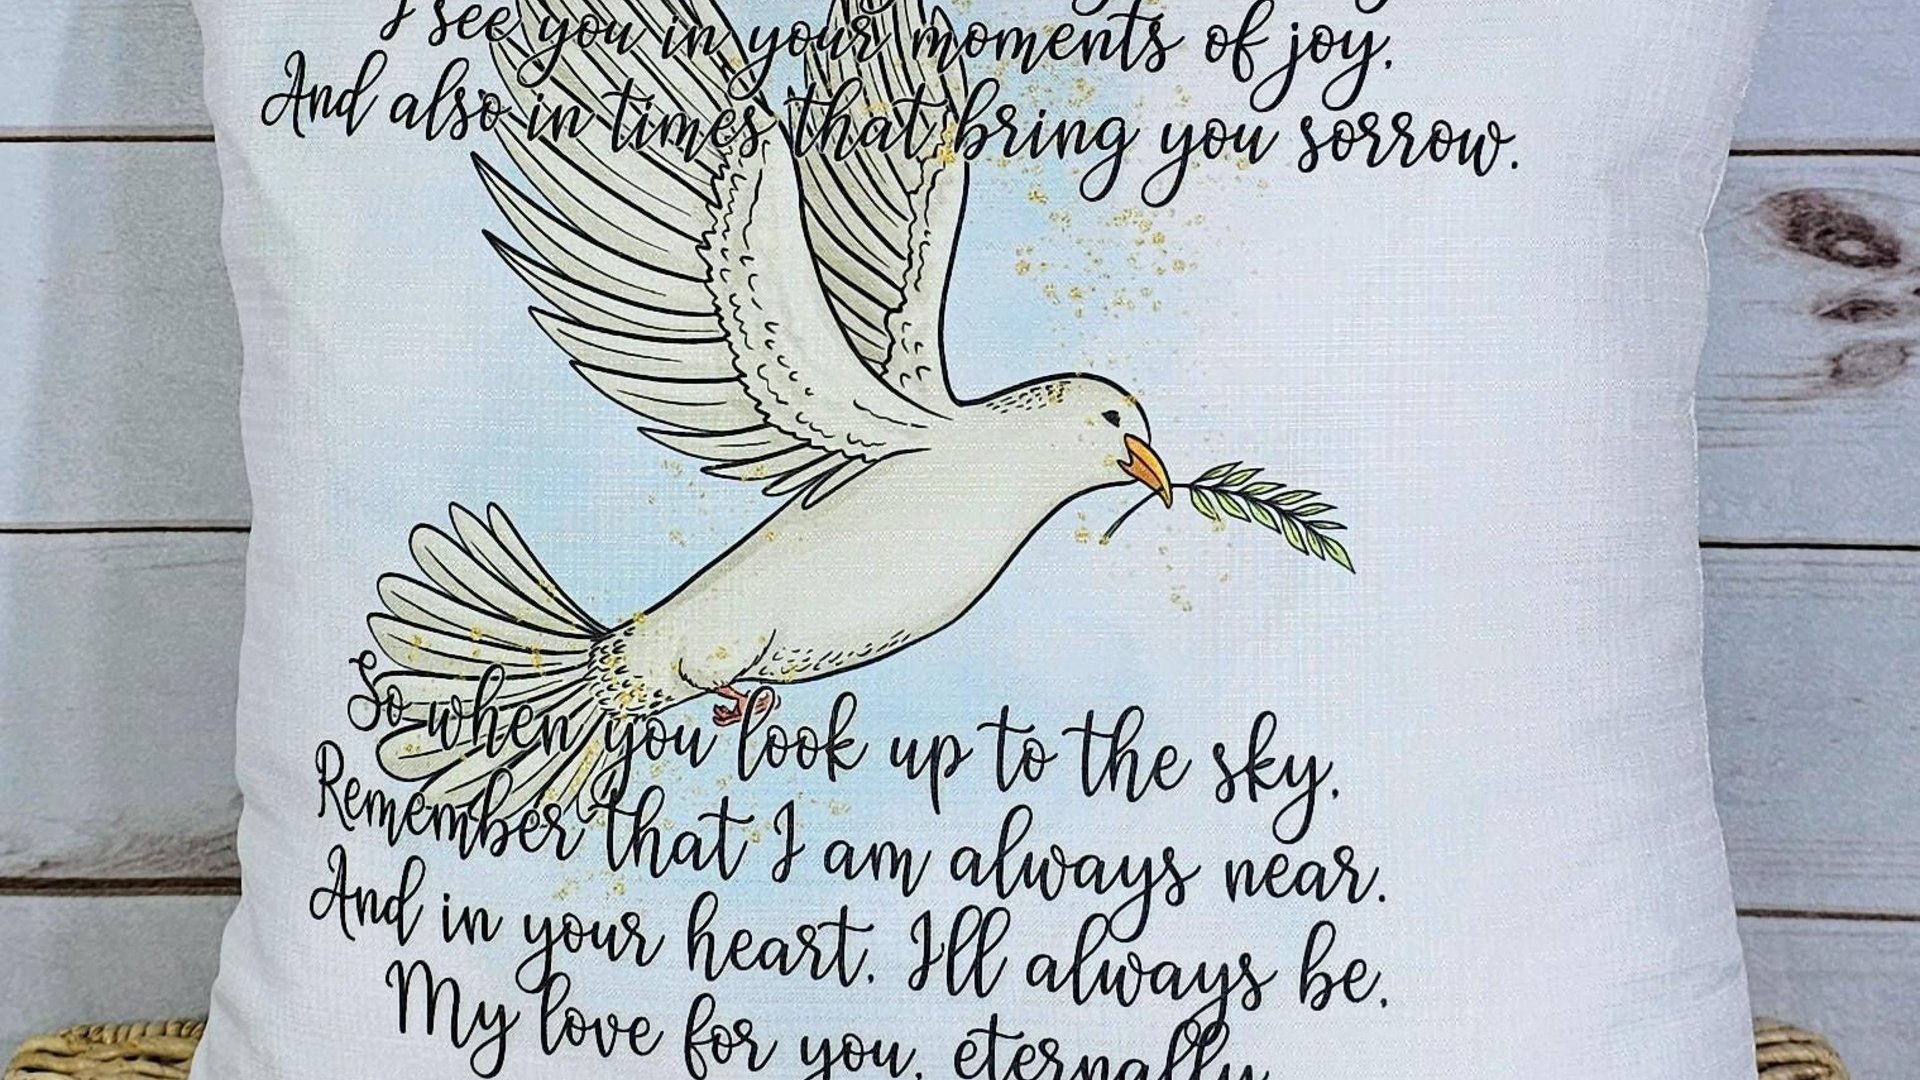 I see you in your moments of joy,
And also in times that bring you sorrow.
So when you look up to the sky,
Remember that I am always near.
And in your heart, I'll always be,
My love for you, eternally